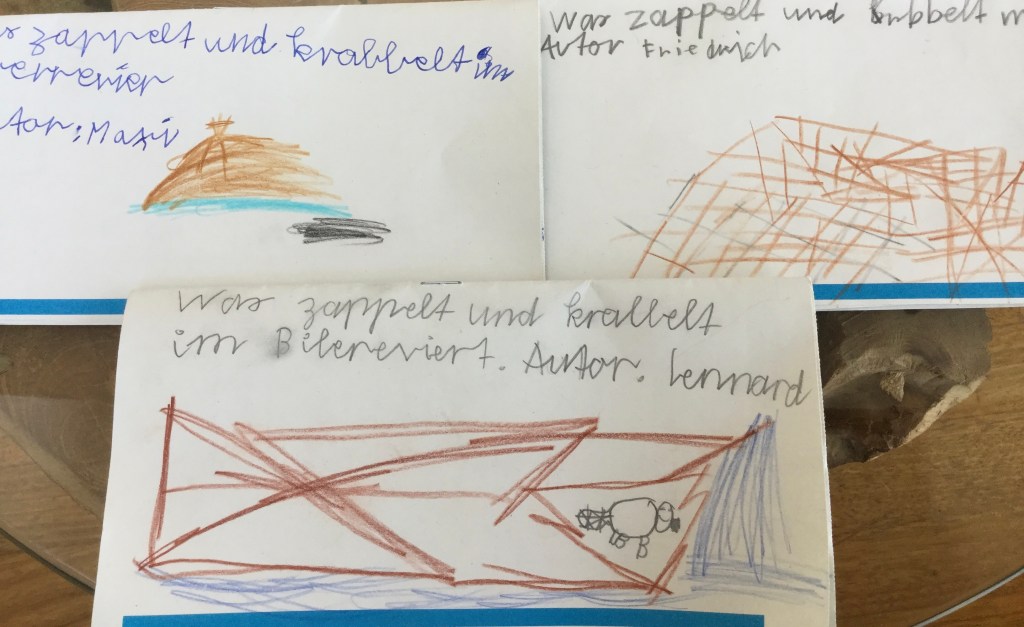 s zappelt und krabbelt im
errevier
tor: Maxi
Was zappelt und
Autor Friedrich
Was zappelt und krabbelt
im Bibereviert. Autor. Lennard